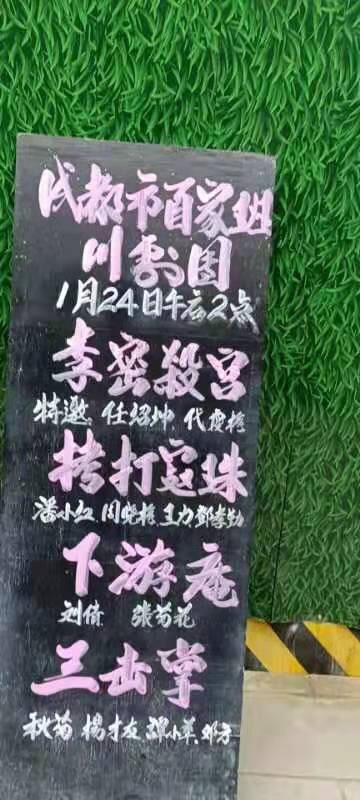 成都市百家班
川剧团
1月24日午后2点
李密殺宫
特邀 任绍坤 代
拷打寇珠
潘小红 周晓梅 王力 鄧孝勤
下游庵
刘倩 张菊花
三击掌
秋菊 楊才友 小英 邓方